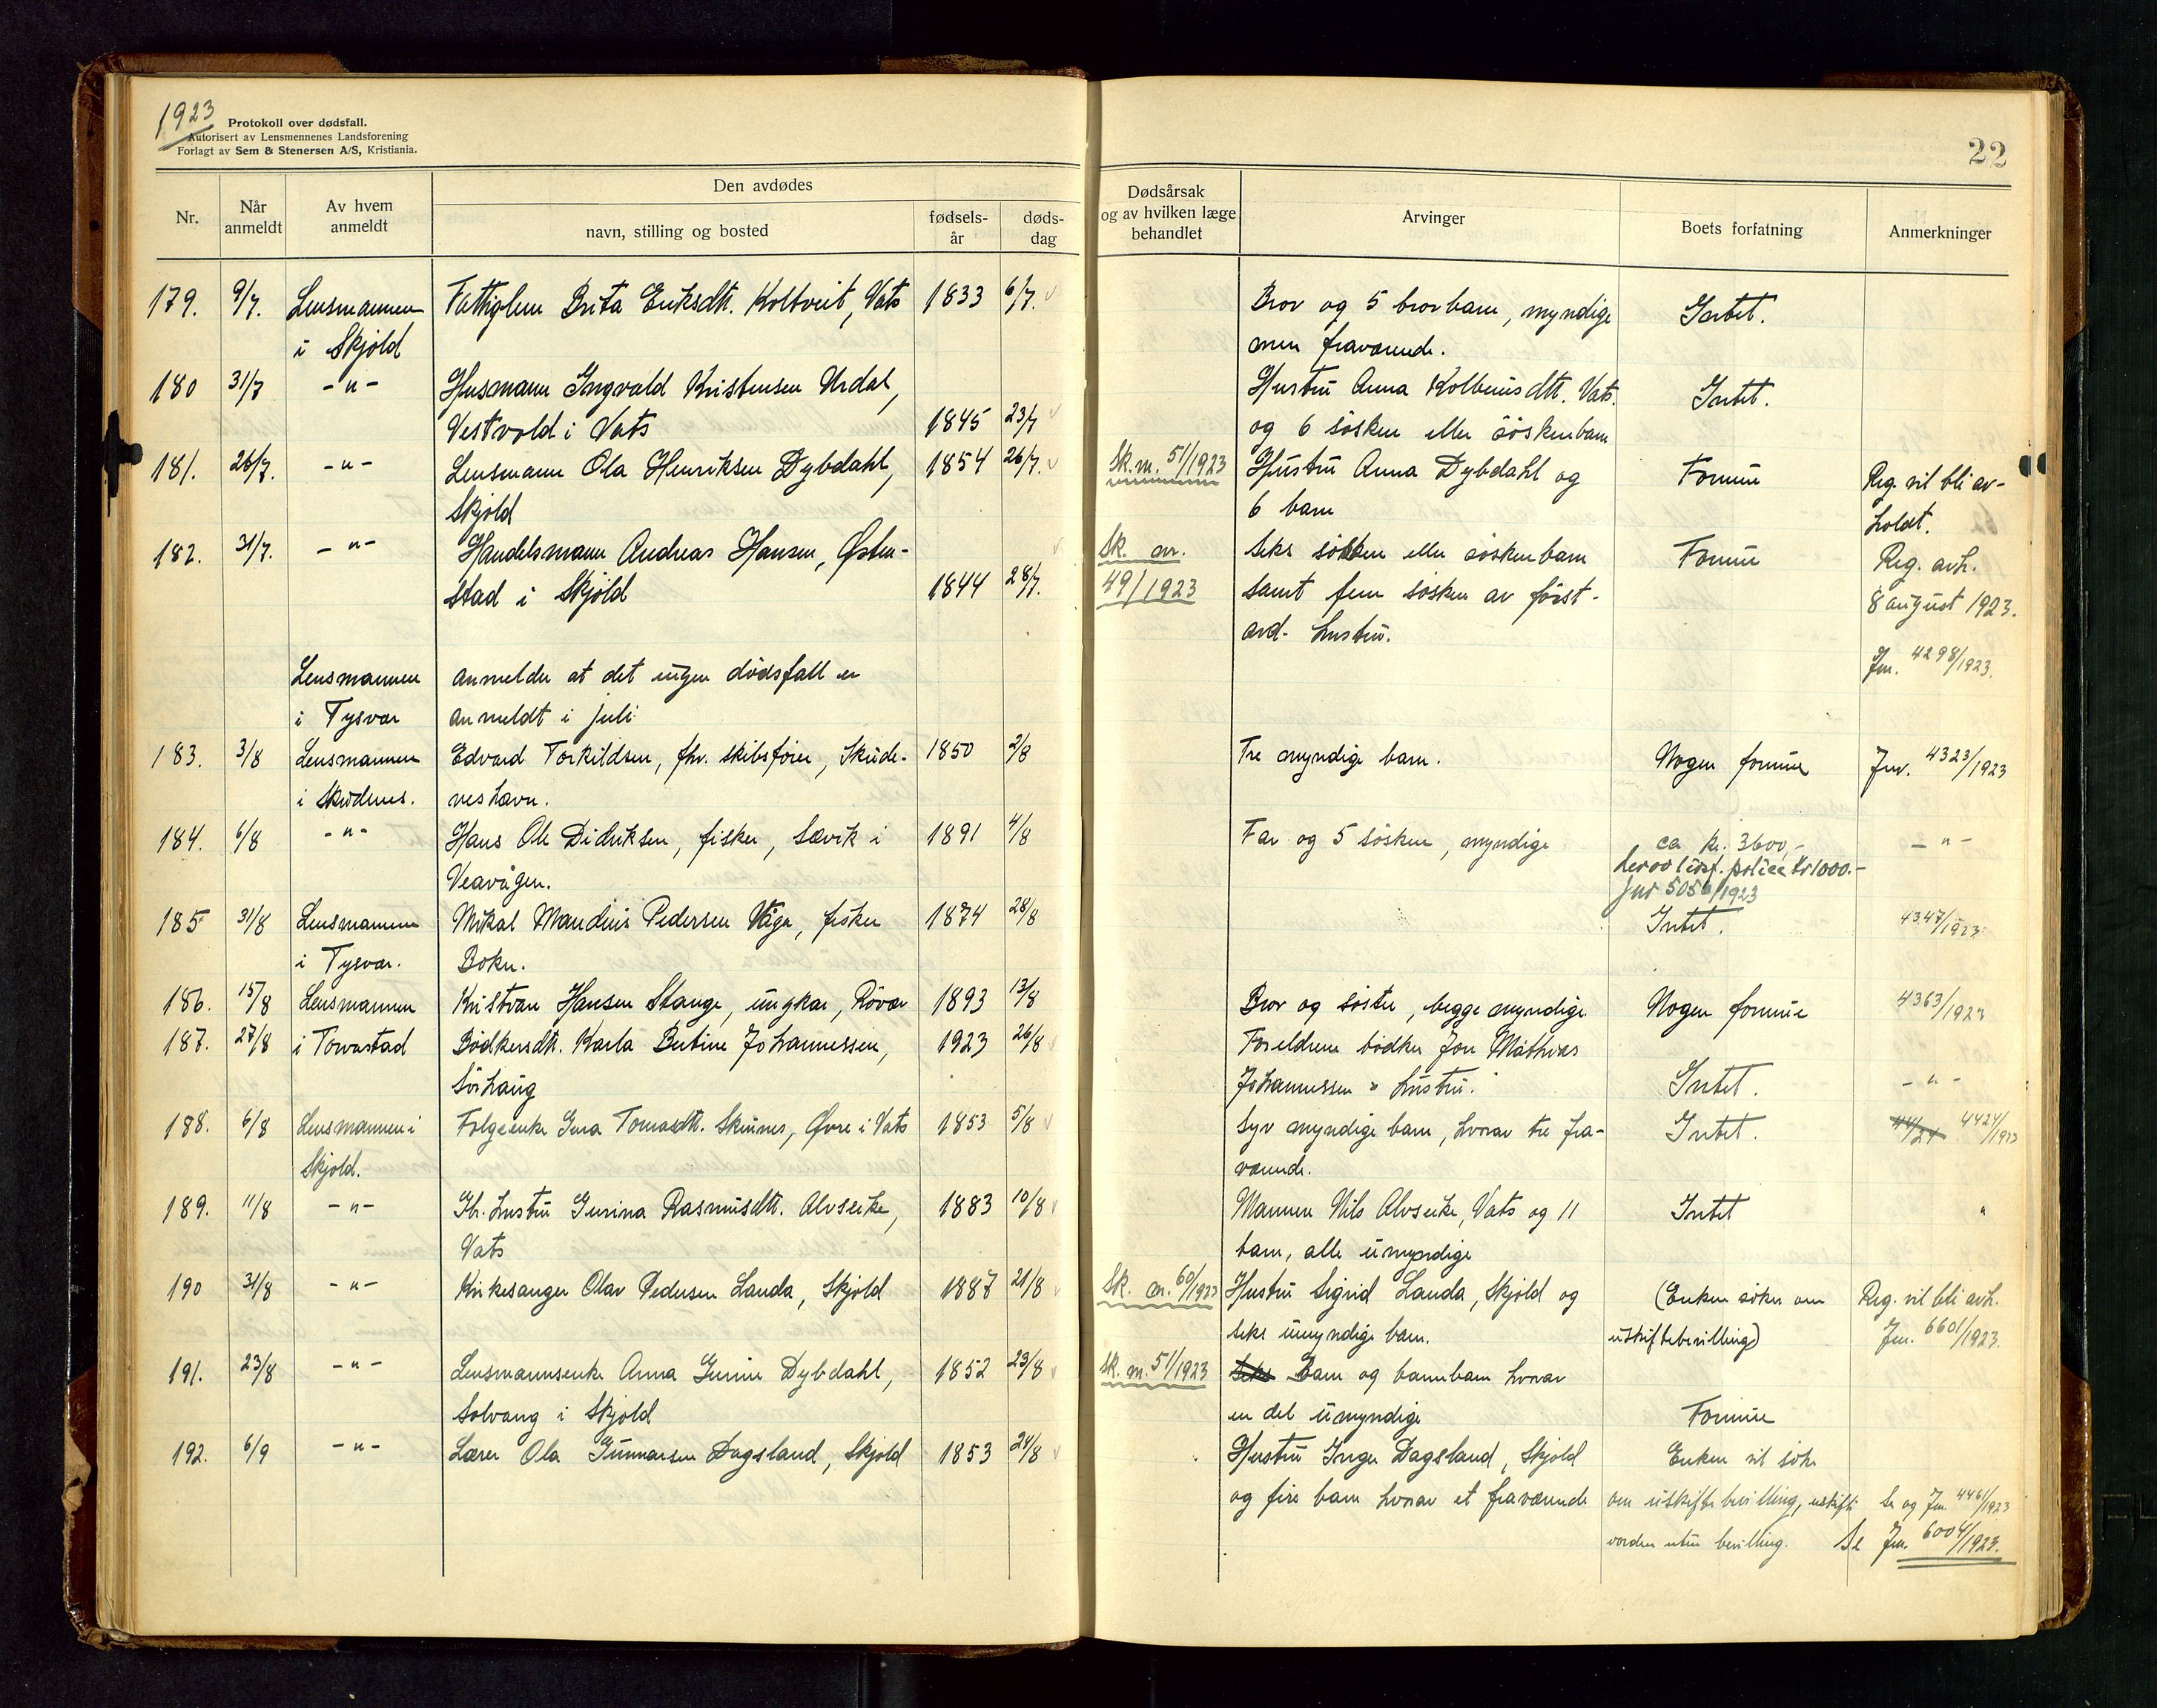 1923
Protokoll over dødsfall.
Autorisert av Lensmennenes Landsforening
Forlagt av Sem & Stenersen A/S, Kristiania.
22
Nr.
Når anmeldt
Av hvem anmeldt
Den avdødes
navn, stilling og bosted
fødsels-år
døds-dag
Dødsårsak og av hvilken læge behandlet
Arvinger
Boets forfatning
Anmerkninger
179. 9/7. Lensmannen Fattiglem Brita Eriksdtr. Koltveit, Vats 1833 6/7. Bror og 5 brorbarn, myndige Intet.
i Skjold men fraværende.
180 31/7 -"- Husmann Ingvald Kristensen Urdal, Hustru Anna Kolbeinsdtr. Vats. Intet.
Vestvold i Vats 1845 23/7 og 6 søsken eller søskenbarn
181. 26/7. -"- Lensmann Ola Henriksen Dybdahl, 1854 26/7. Sk.m. 51/1923 Hustru Anna Dybdahl og Formue Reg. vil bli av-
Skjold 6 barn holdt.
182. 31/7. -"- Handelsmann Andreas Hansen, Østen- Sk. nr. Seks søsken eller søskenbarn Formue Reg. avh.
stad i Skjold 1844 28/7. 49/1923 samt fem søsken av først- 8 august 1923.
avd. hustru.
Jnr. 4298/1923.
Lensmannen anmelder at det ingen dødsfall er
i Tysvær anmeldt i juli
183. 3/8 Lensmannen Edvard Torkildsen, fhv. skibsfører, Skude- 1850 2/8 Tre myndige barn. Nogen formue Jnr. 4323/1923
i Skudenes. neshavn.
184. 6/8 -"- Hans Ole Didriksen, fisker, Sævik i 1891 4/8 Far og 5 søsken, myndige ca kr. 3600,- -"-
Veavågen. herav livsf. police kr 1000.-
Jnr 5056/1923
185 31/8 Lensmannen Mikal Mandius Pedersen Våge, fisker 1874 28/8 Intet. 4347/1923
i Tysvær. Bokn.
186. 15/8 Lensmannen Kristian Hansen Stange, ungkar, Røvær 1893 13/8 Bror og søster, begge myndige Nogen formue 4363/1923
187. 27/8 i Torvastad Bødkersdtr. Karla Bertine Johannessen, 1923 26/8 Foreldrene bødker Jon Mathias
Sørhaug Johannessen & hustru. Intet. -"-
188. 6/8 Lensmannen i Følgeenke Gina Tomasdtr. Skeines, Øvre i Vats 1853 5/8 Syv myndige barn, hvorav tre fra- Intet. 4424/1923
Skjold. værende.
189. 11/8 -"- Gb. hustru Gurina Rasmusdtr. Alvseike, 1883 10/8 Mannen Nils Alvseike, Vats og 11 Intet "
Vats barn, alle umyndige
190 31/8 -"- Kirkesanger Olav Pedersen Landa, Skjold 1887 21/8 Sk. nr. 60/1923 Hustru Sigrid Landa, Skjold og (Enken søker om Reg. vil bli avh.
seks umyndige barn. uskiftebevilling) Jnr. 6601/1923.
191. 23/8 -"- Lensmannsenke Anna Gurine Dybdahl, 1852 23/8 Sk. m. 51/1923 Seks Barn og barnebarn hvorav
Solvang i Skjold en del umyndige Formue
192. 6/9 -"- Lærer Ola Gunnarsen Dagsland, Skjold 1853 24/8 Hustru Inger Dagsland, Skjold Enken vil søke
og fire barn hvorav et fraværende om uskiftebevilling, Se og Jnr. 4461/1923
bevilling. Se Jnr. 6004/1923.